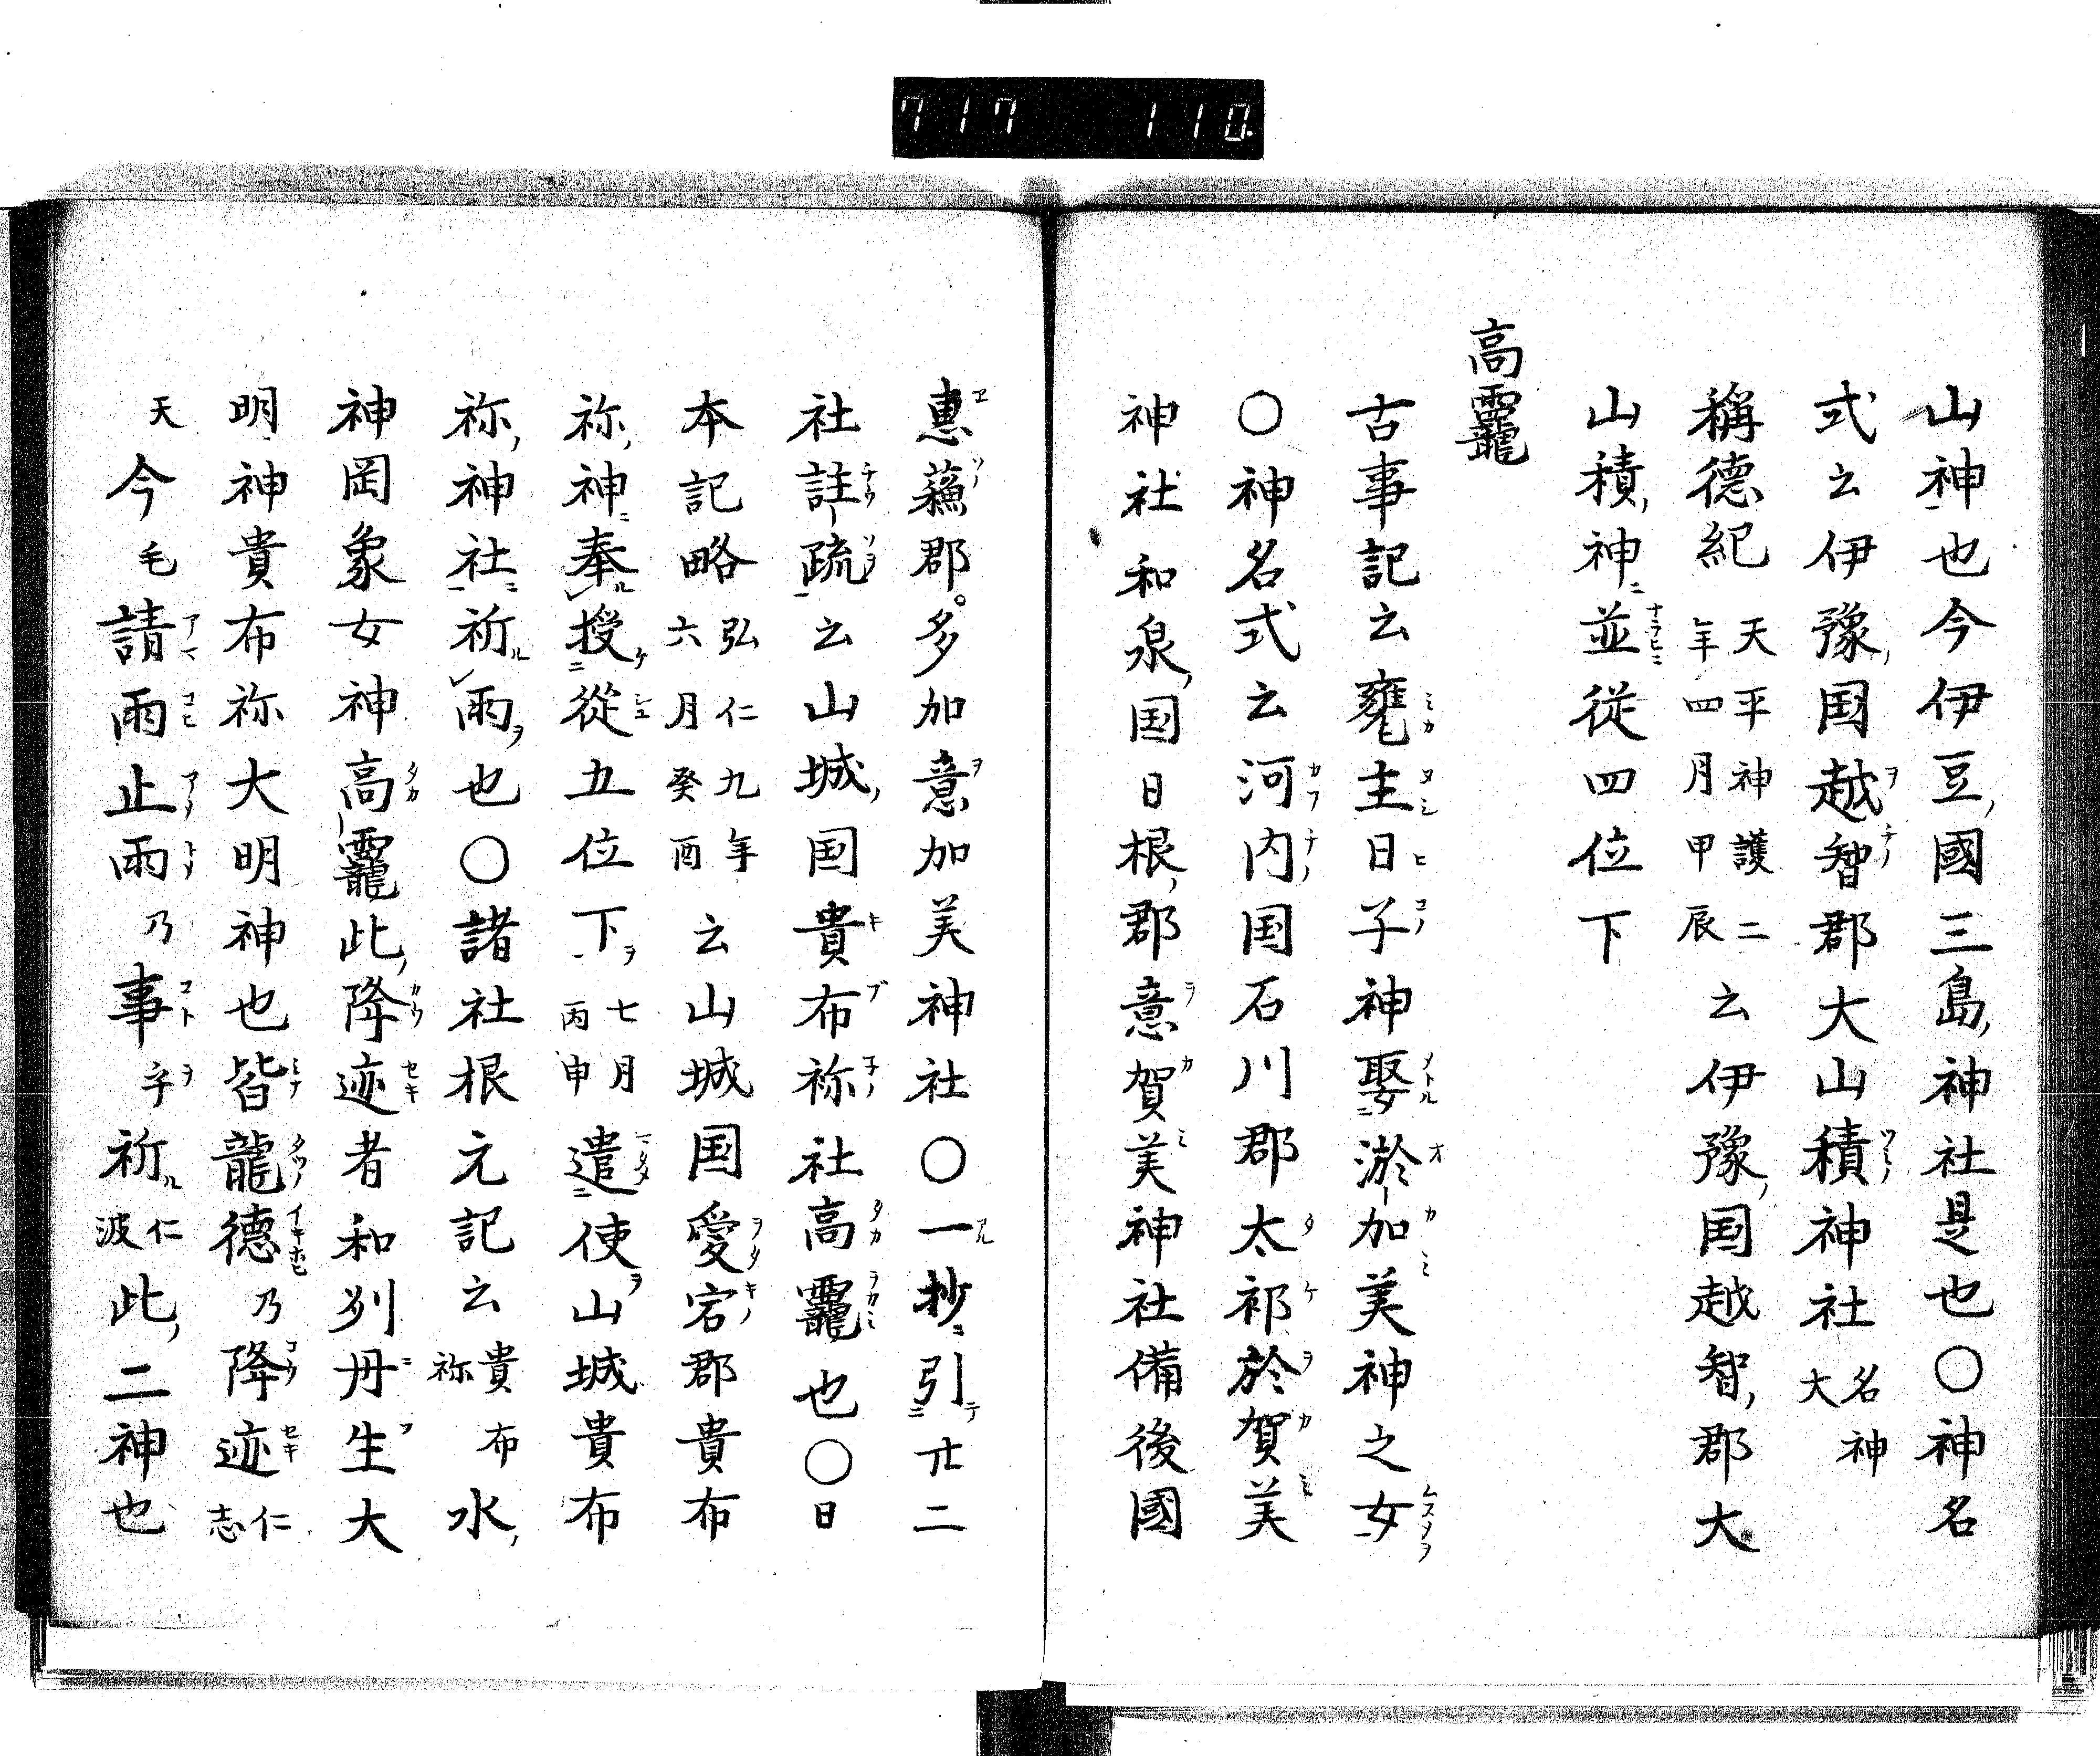 717 110.
山神也今伊豆國三島神社是也〇神名
式云伊豫国越智郡大山積神社名神大
稱德紀天平神護二年四月甲辰云伊豫国越智郡大
山積神並從四位下
高龗
古事記云甕主日子神娶淤加美神之女
〇神名式云河内国石川郡太祁於賀美
神社和泉国日根郡意賀美神社備後國
惠蘓郡多加意加美神社〇一抄引廿二
社註疏云山城国貴布祢社高龗也〇日
本記略弘仁九年六月癸酉云山城国愛宕郡貴布
祢神奉授從五位下七月丙申遣使山城貴布
祢神社祈雨也〇諸社根元記云貴布祢水
神罔象女神高龗此降迹者和刕丹生大
明神貴布祢大明神也皆龍德乃降迹仁志
天今毛請雨止雨乃事乎祈仁波此二神也